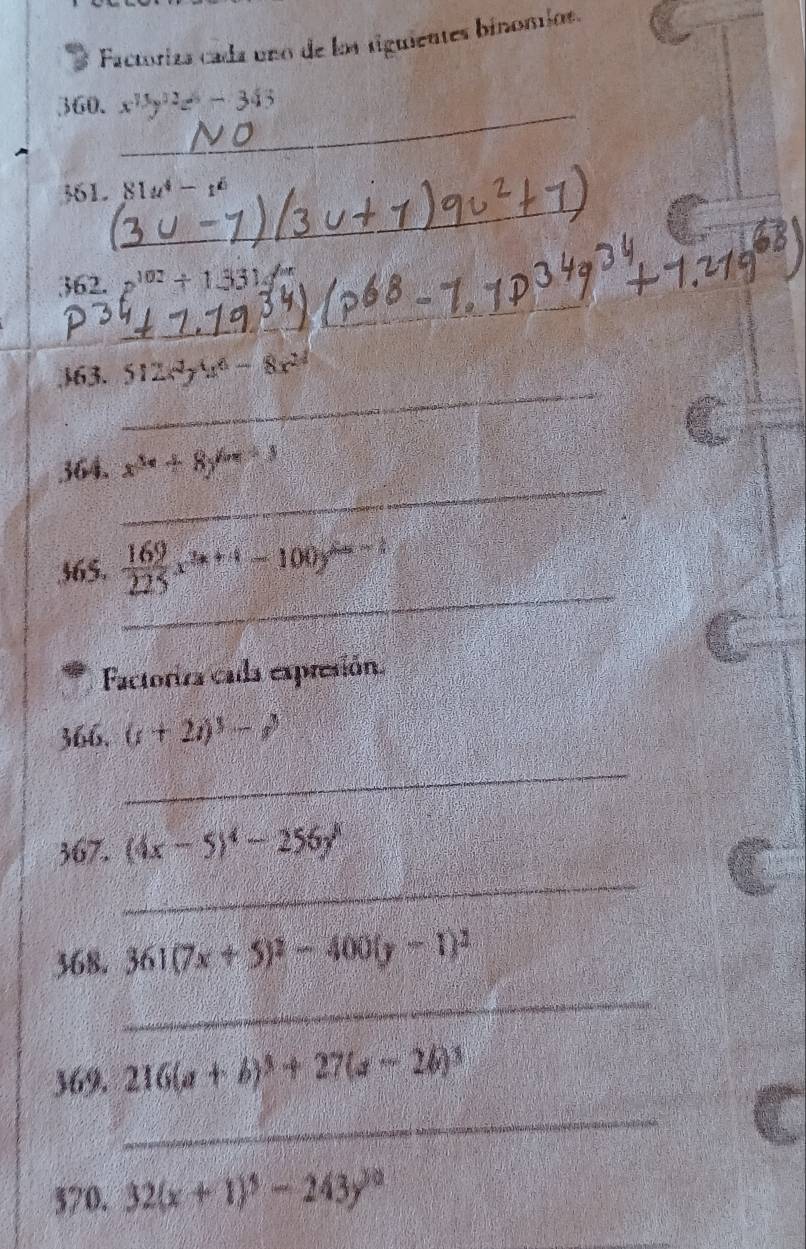 Factoriza cada uno de los siguientes binomios.
360. x¹⁵y¹²z⁶ − 343
NO
361. 81u⁴ − z⁶
(3u − 1)(3u + 1)9u² + 1)
362. p¹⁰² + 1.331
p³⁴ + 1.1q³⁴)(p⁶⁸ − 1.1p³⁴q³⁴ + 1.21q⁶⁸)
363. 512
− 8x²⁴
364. x³ᵃ + 8y
365. 169/225
− 100y
Factoriza cada expresión.
366. (s + 2t)³ −
367. (4x − 5)⁴ − 256y⁸
368. 361(7x + 5)² − 400(y − 1)²
369. 216(a + b)³ + 27(a − 2b)³
370. 32(x + 1)⁵ − 243y¹⁰